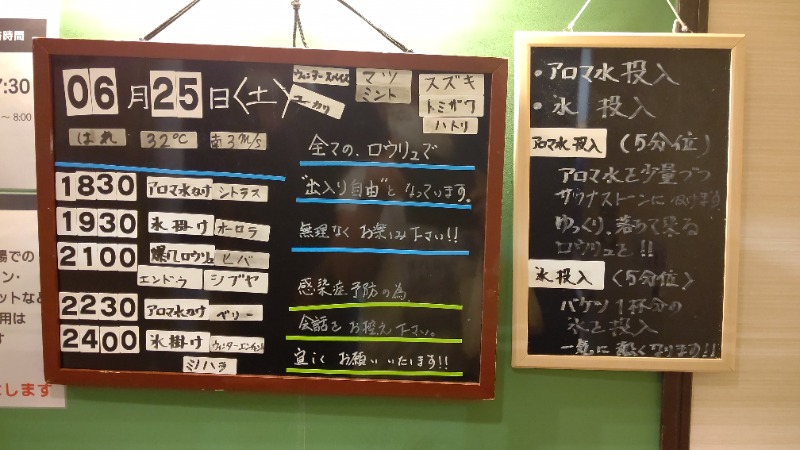 時間
7:30
～8:00
06月25日〈土〉
ウィンタースパイス
ユーカリ
マツ
ミント
スズキ
トミガワ
ハトリ
はれ 32℃ 南3m/s
1830 アロマ水かけ シトラス
1930 氷掛け オーロラ
2100 爆風ロウリュ ヒバ
エンドウ シブヤ
2230 アロマ水かけ ベリー
2400 氷掛け
ミハラ
全ての、ロウリュで
"出入り自由"となっています。
無理なくお楽しみ下さい!!
感染症予防の為、
会話をお控え下さい。
宜しくお願いいたします!!
・アロマ水投入
・氷 投入
アロマ水投入 (5分位)
アロマ水を少量づつ
サウナストーンに
ゆっくり、落ちて来る
ロウリュを!!
氷投入 〈5分位〉
バケツ1杯分の
氷を投入
一気に熱くなります!!
場での
ン・
ットなど
用は
す
します